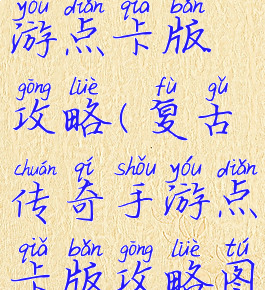 yóu diǎn qiǎ bǎn
游点卡版
gōng lüè fù gǔ
攻略(复古
chuán qí shǒu yóu diǎn
传奇手游点
qiǎ bǎn gōng lüè tú
卡版攻略图